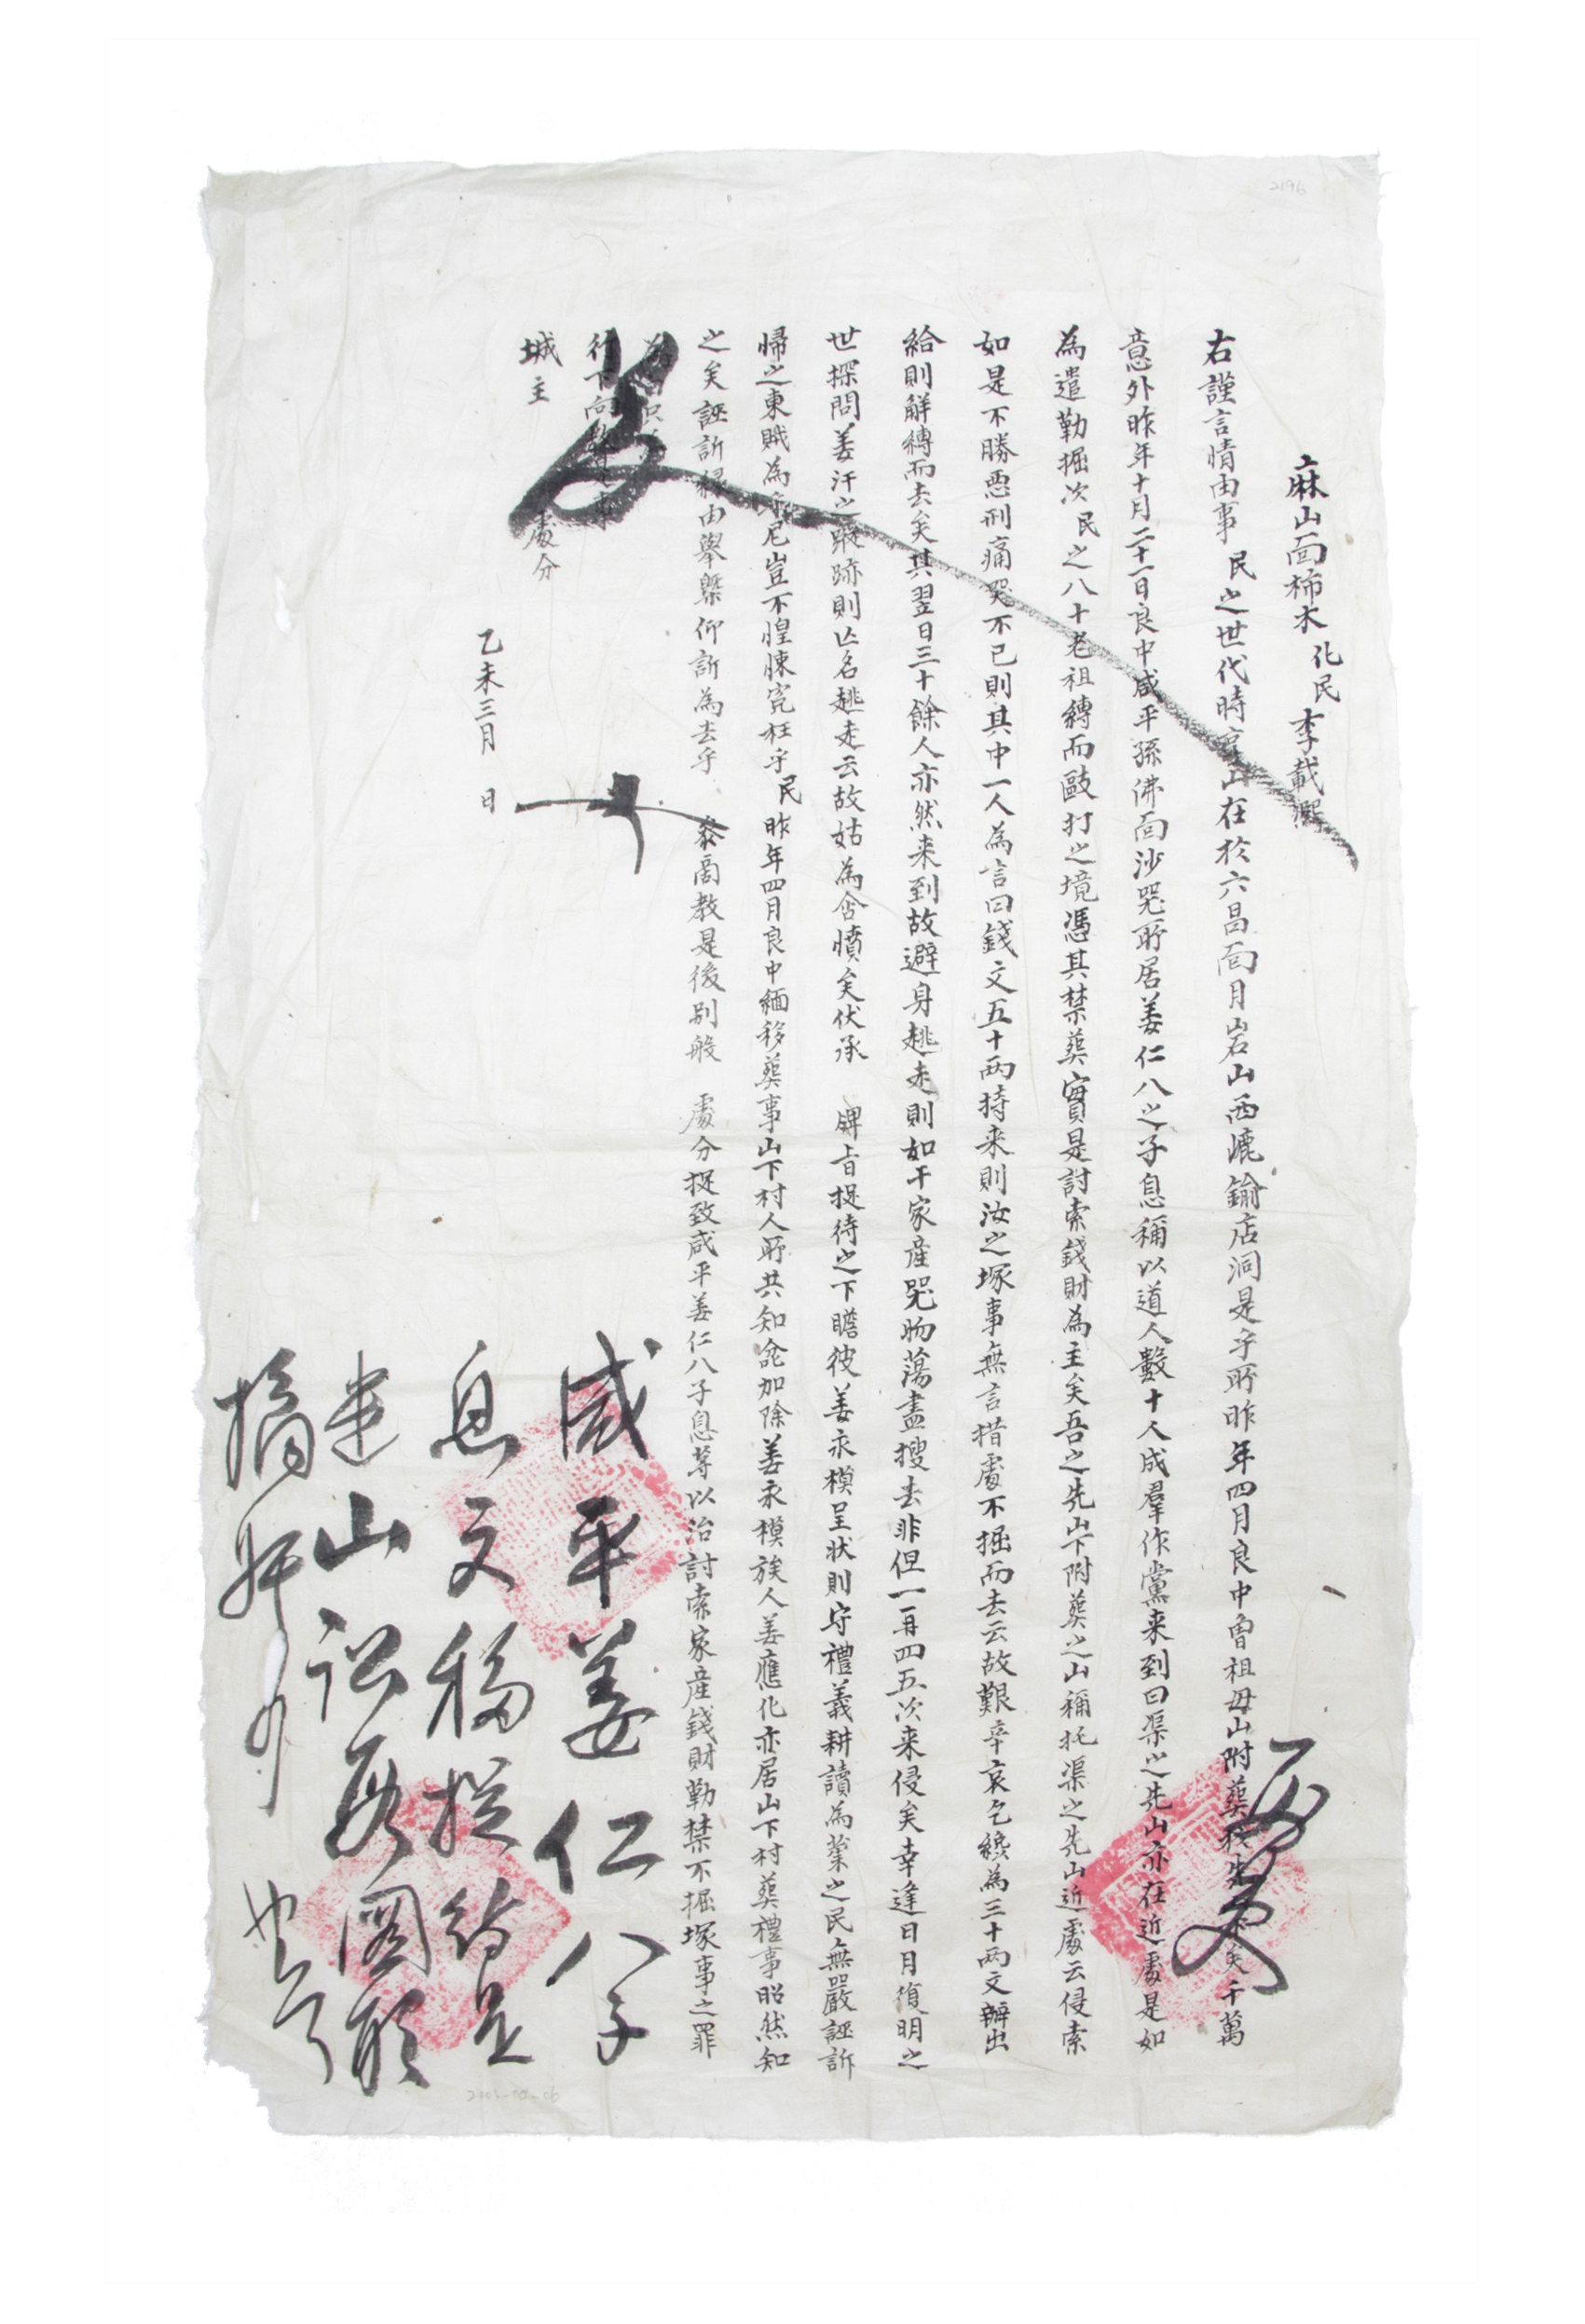 麻山面柿木 化民 李載
右謹言情由事 民之世代時享山在於六昌面月岩山西麓鍮店洞是乎所昨年四月良中曾祖母山附葬 矣千萬
意外昨年十月二十一日良中咸平孫佛面沙器所居姜仁八之子息稱以道人數十人成羣作黨来到曰渠之先山亦在近處是如
為遣勤掘次民之八十老祖縛而敺打之境憑其禁葬實是討索錢財為主矣吾之先山下附葬之山稱托渠之先山近處云侵索
如是不勝悪刑痛哭不已則其中一人為言曰錢文五十兩持来則汝之塚事無言措處不掘而去云故艱辛哀乞纔為三十兩文辦出
給則觧縛而去矣其翌日三十餘人亦然来到故避身逃走則如干家産器物蕩盡搜去非但一再四五次来侵矣幸逢日月復明之
世探問姜汗之蹤跡則亡名逃走云故姑為含憤矣伏承 牌旨捉待之下瞻彼姜永模呈狀則守禮義耕讀為業之民無嚴誣訴
歸之東賊為乎尼豈不惶悚寃枉乎民昨年四月良中緬移葬事山下村人所共知叱除姜永模族人姜應化亦居山下村葬禮事昭然知
之矣誣訴緣由擧槩仰訴為去乎 叅商教是後別般 處分捉致咸平姜仁八子息等以治討索家産錢財勒禁不掘塚事之罪
行下向教是事
城主 處分
乙未三月 日
咸平姜仁八子
息文移捉給是
山訟